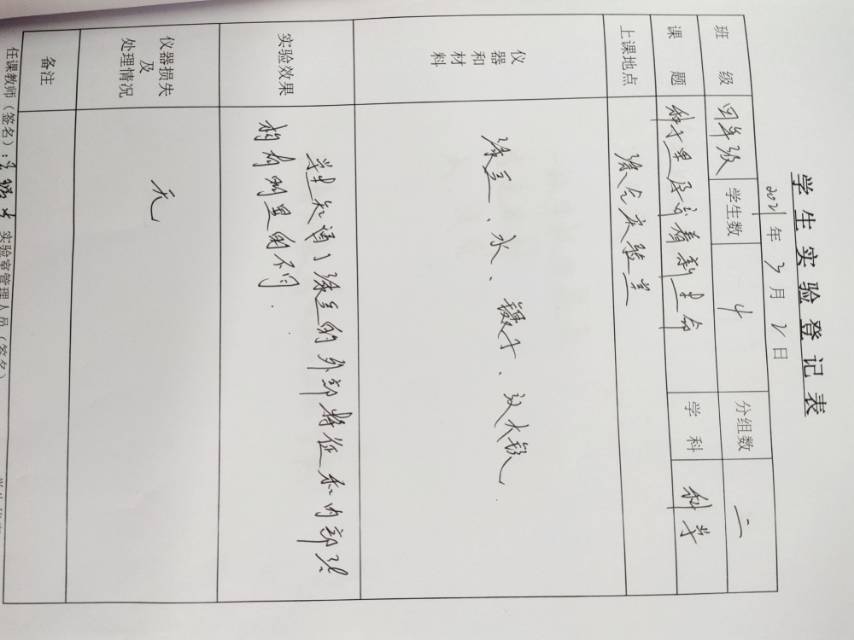 学生实验登记表
2021年3月2日
班 级 四年级 学生数 4 分组数 二
课 题 种子里孕育着新生命 学 科 科学
上课地点
仪器和材料 水、镊子、放大镜
实验效果 学生知道了 的外部特征和内部
构 的不同.
仪器损失及处理情况 无
备注
任课教师(签名): 实验室管理人员(签名)